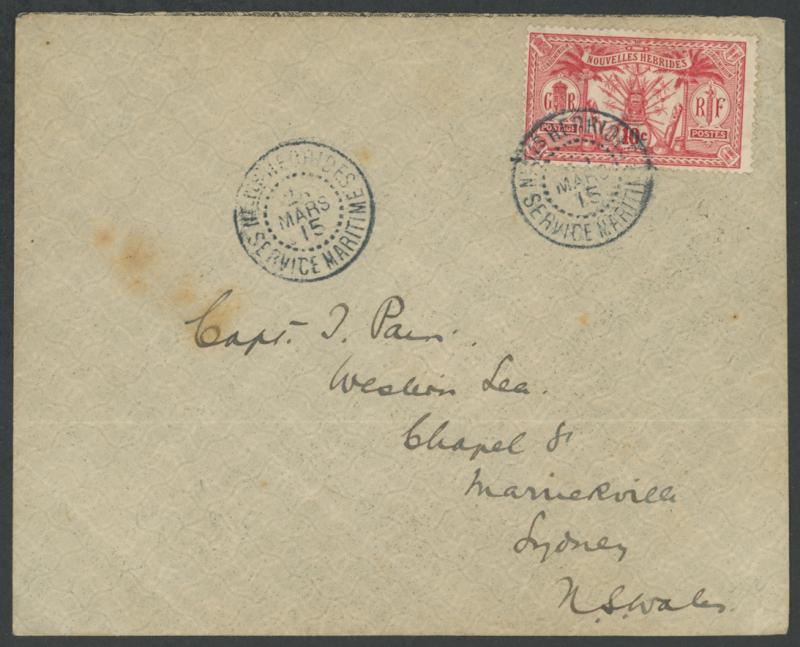 NOUVELLES HEBRIDES
G R
R F
POSTAGE
10c
POSTES
HEBRIDES
MARS
15
SERVICE MARITIME
HEBRIDES
MARS
15
SERVICE MARITIME
Capt. J. Pain.
Western Lea.
Chapel St
Marrickville
Sydney
N.S.Wales.